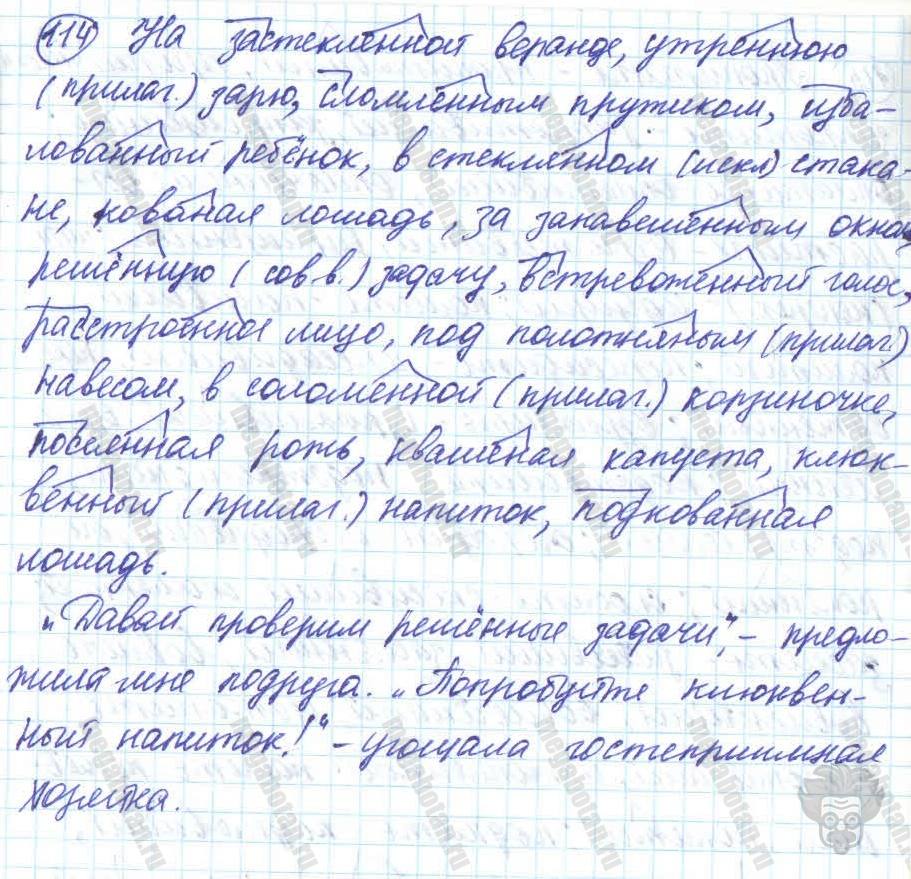 114 На застеклённой веранде, утреннюю
(прилаг.) зарю, сломленным прутиком, изба-
лованный ребёнок, в стеклянном (искл) стака-
не, кованая лошадь, за занавешенным окном,
решённую (сов в.) задачу, встревоженный голос,
расстроенное лицо, под полотняным (прилаг)
навесом, в соломенной (прилаг.) корзиночке,
посеянная рожь, квашеная капуста, клюк-
венный (прилаг.) напиток, подкованная
лошадь.
„Давай проверим решённые задачи", – предло-
жила мне подруга. „Попробуйте клюквен-
ный напиток!" – угощала гостеприимная
хозяйка.
megabotan.ru